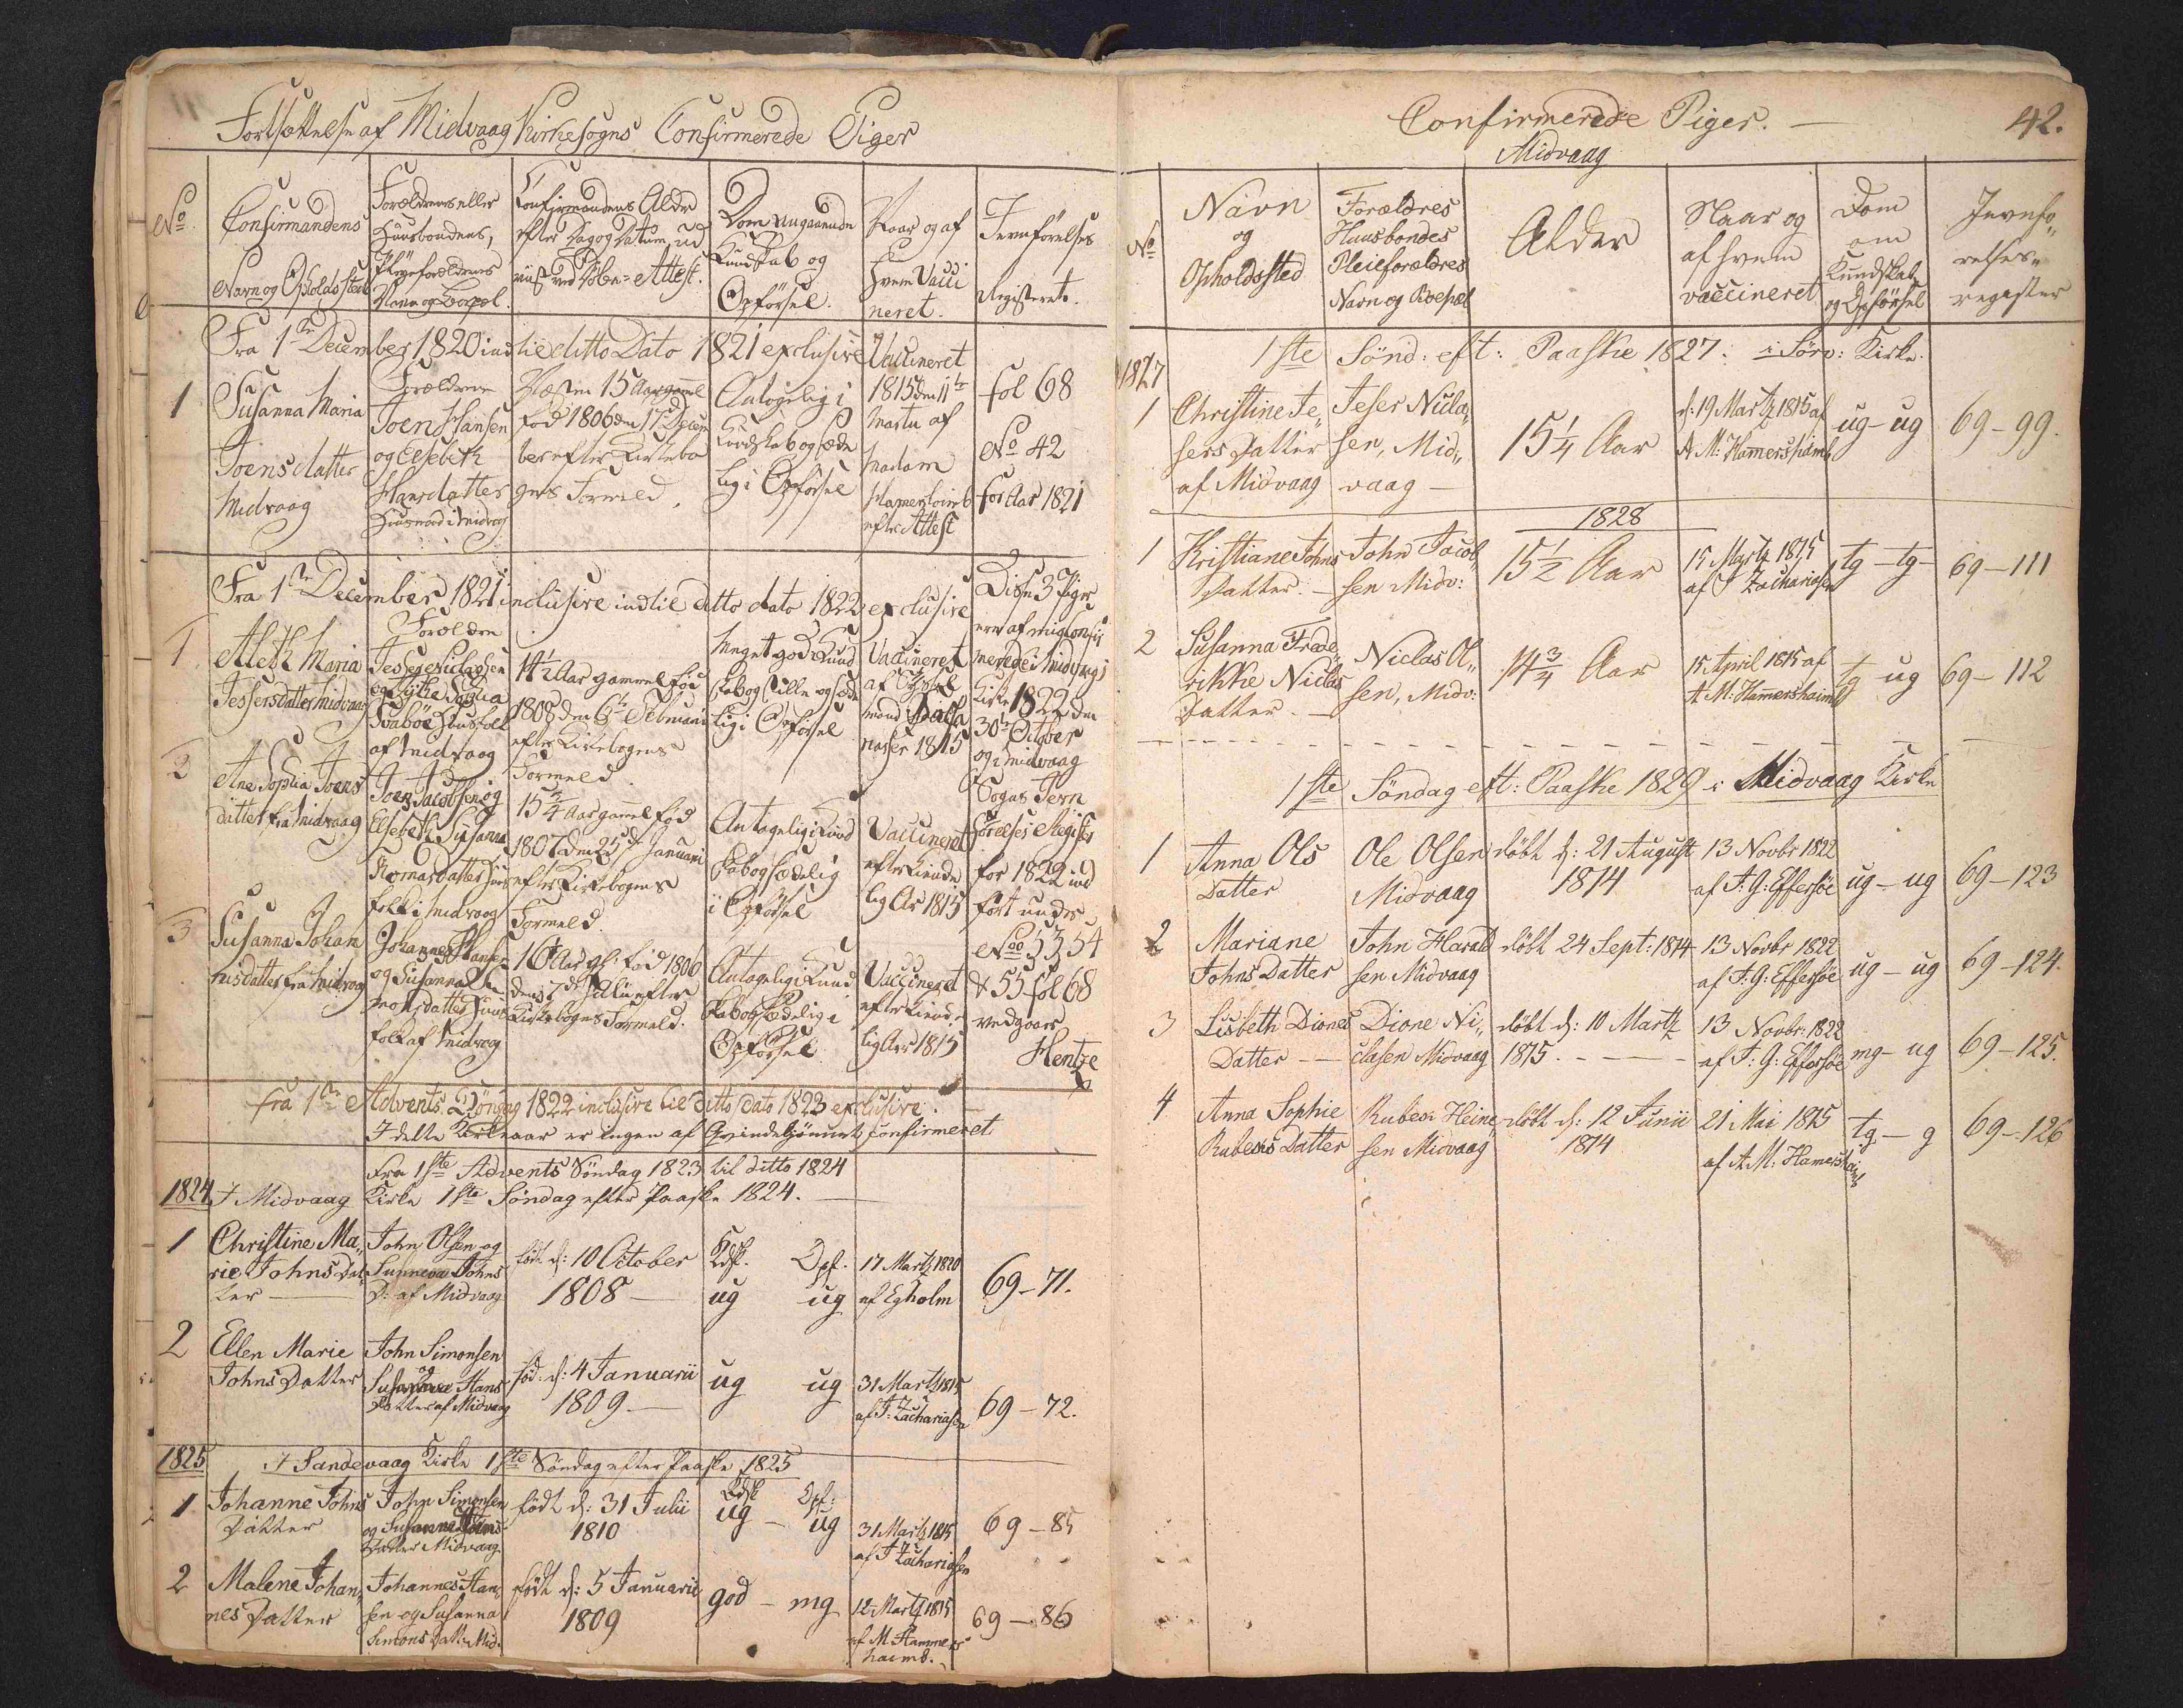 Fortsættelse af Midvaag Kirkesogns Confirmerede Piger
No
Confirmandens
Navn og Opholdssted
Forældrenes eller
Huusbondens,
Pleyeforældrenes
Navn og Boepæl.
Confirmandens Alder
efter Dag og Datum, ud
viist ved Døbe=Attest.
Dom angaaende
Kundskab og
Opførsel.
Naar og af
hvem Vacci
neret.
Jevnførelses
Registeret.
Fra 1ste December 1820 indtil ditto Dato 1821 exclusive
1
Susanna Maria
Joensdatter
Midvaag
Forældrene
Joen Hansen
og Elsebeth
Hansdatter
Huusmand i Midvog
Næsten 15 Aar gammel
fød 1806 den 17 Decem
ber efter Kirkebo
gens Formeld.
Antagelig i
Kundskab og sæde
lig i Opførsel
Vaccineret
1815 den 11te
Martii af
Madam
Hamershoimb
efter Attest
fol 68
No 42
for Aar 1821
Fra 1ste December 1821 inclusive indtil ditto dato 1822 exclusive
1
Aleth Maria
Jessersdatter Midvaag
Forældre
Jesser Niclasen
af Midvaag
14½ Aar gammel fød
1808 den 6te Februari
efter Kirkebogens
Formeld.
Meget god Kund
skab og stille og sæde
lig i Opførsel
Vaccineret
1815
Disse 3 Piger
ere af mig confir
merede i Midvaag
Kirke 1822 den
30te October
og i Midvaag
Sogns Jevn
førelses Register
for 1822 ind
ført under
No 53 54
& 55 fol 68
vedgaaer
Hentze
2
Ane Sophia Joens
datter fra Midvaag
Joen Jacobsen og
Elsebeth Susanna
Thomasdatter Huus
folk i Midvaag
15¾ Aar gammel fød
1807 den 25de Januari
efter Kirkebogens
Formeld.
Antagelig i Kund
skab og sædelig
i Opførsel
Vaccineret
efter Kiende
lig Ar 1815
3
Susanna Johan
nisdatter fra Midvog
Johannes Hansen
og Susanna Si
monsdatter Huus
folk af Midvog
16 Aar gl: fød 1806
den 7de Julii efter
Kirkebogens Formeld.
Antagelig i Kund
skab og Sædelig i
Opførsel
Vaccineret
efter Kiende
lig Arr 1815
Fra 1ste Advents Söngag 1822 inclusive til ditto dato 1823 exclusive.
I dette Kirkeaar er ingen af Qvindekjönnet confirmeret
Fra 1ste Advents Söndag 1823 til ditto 1824
1824
I Midvaag Kirke 1ste Söndag efter Paaske 1824.
1
Christine Ma„
rie Johns Dat„
ter
John Olsen og
Sunneva Johns
D: af Midvaag
födt d: 10 October
1808
Kdsk. Opf.
ug ug
17 Martz 1820
af Egholm
69-71.
2
Ellen Marie
Johns Datter
John Simonsen
og
Susanna Hans
Datter af Midvaag
föd: d: 4 Januarii
1809
ug ug
31 Martz 1815
af J: Zachariasen
69-72.
1825
I Sandevaag Kirke 1ste Söndag efter Paaske 1825
1
Johanne Johns
Datter
John Simonsen
og Susanna Hans
Datter Midvaag
födt d: 31 Julii
1810
Kdsk Opf:
ug - ug
31 Martz 1815
af J Zachariasen
69-85
2
Malene Johan„
nes Datter
Johannes Han„
sen og Susanna
Simons Dat: Mid.
födt d: 5 Januarii
1809
god - mg
12 Martz 1815
af M Hammers
haimb.
69-86
42.
Confirmerede Piger.
Midvaag
No
Navn
og
Opholdssted
Forældres
Huusbondes
Pleieforældres
Navn og Boepæl
Alder
Naar og
af hvem
vaccineret
Dom
om
Kundskab
og Opførsel
Jevnfø„
relses„
register
1827
1ste Sönd: eft: Paaske 1827: i Sörv: Kirke.
1
Christine Je„
sers Datter
af Midvaag
Jeser Nicla„
sen, Mid„
vaag
15¼ Aar
d: 19 Martz 1815 af
A M: Hamershaimb
ug - ug
69-99.
1828
1
Kristiane Johns
Datter.
John Jacob„
sen Midv:
15½ Aar
15 Martz 1815
af J Zachariasen
tg - tg
69-111
2
Susanna Frede„
rikke Niclas
Datter.
Niclas Ol„
sen, Midv:
14¾ Aar
15 April 1815 af
A M: Hamershaimb
tg ug
69-112
1ste Söndag eft: Paaske 1829 i Midvaag Kirke
1
Anna Ols
Datter
Ole Olsen
Midvaag
döbt d: 21 August
1814
13 Novbr 1822
af J: G: Effersöe
ug - ug
69-123
2
Mariane
Johns Datter
John Harald
sen Midvaag
döbt 24 Sept: 1814
13 Novbr 1822
af J: G: Effersöe
ug - ug
69-124.
3
Lisbeth Diones
Datter
Dione Ni„
clasen Midvaag
döbt d: 10 Martz
1815.
13 Novbr: 1822
af J: G: Effersöe
mg - ug
69-125.
4
Anna Sophie
Rubens Datter
Ruben Heine„
sen Midvaag
döbt d: 12 Junii
1814
21 Mai 1815
af A M: Hamershaimb
tg - g
69-126